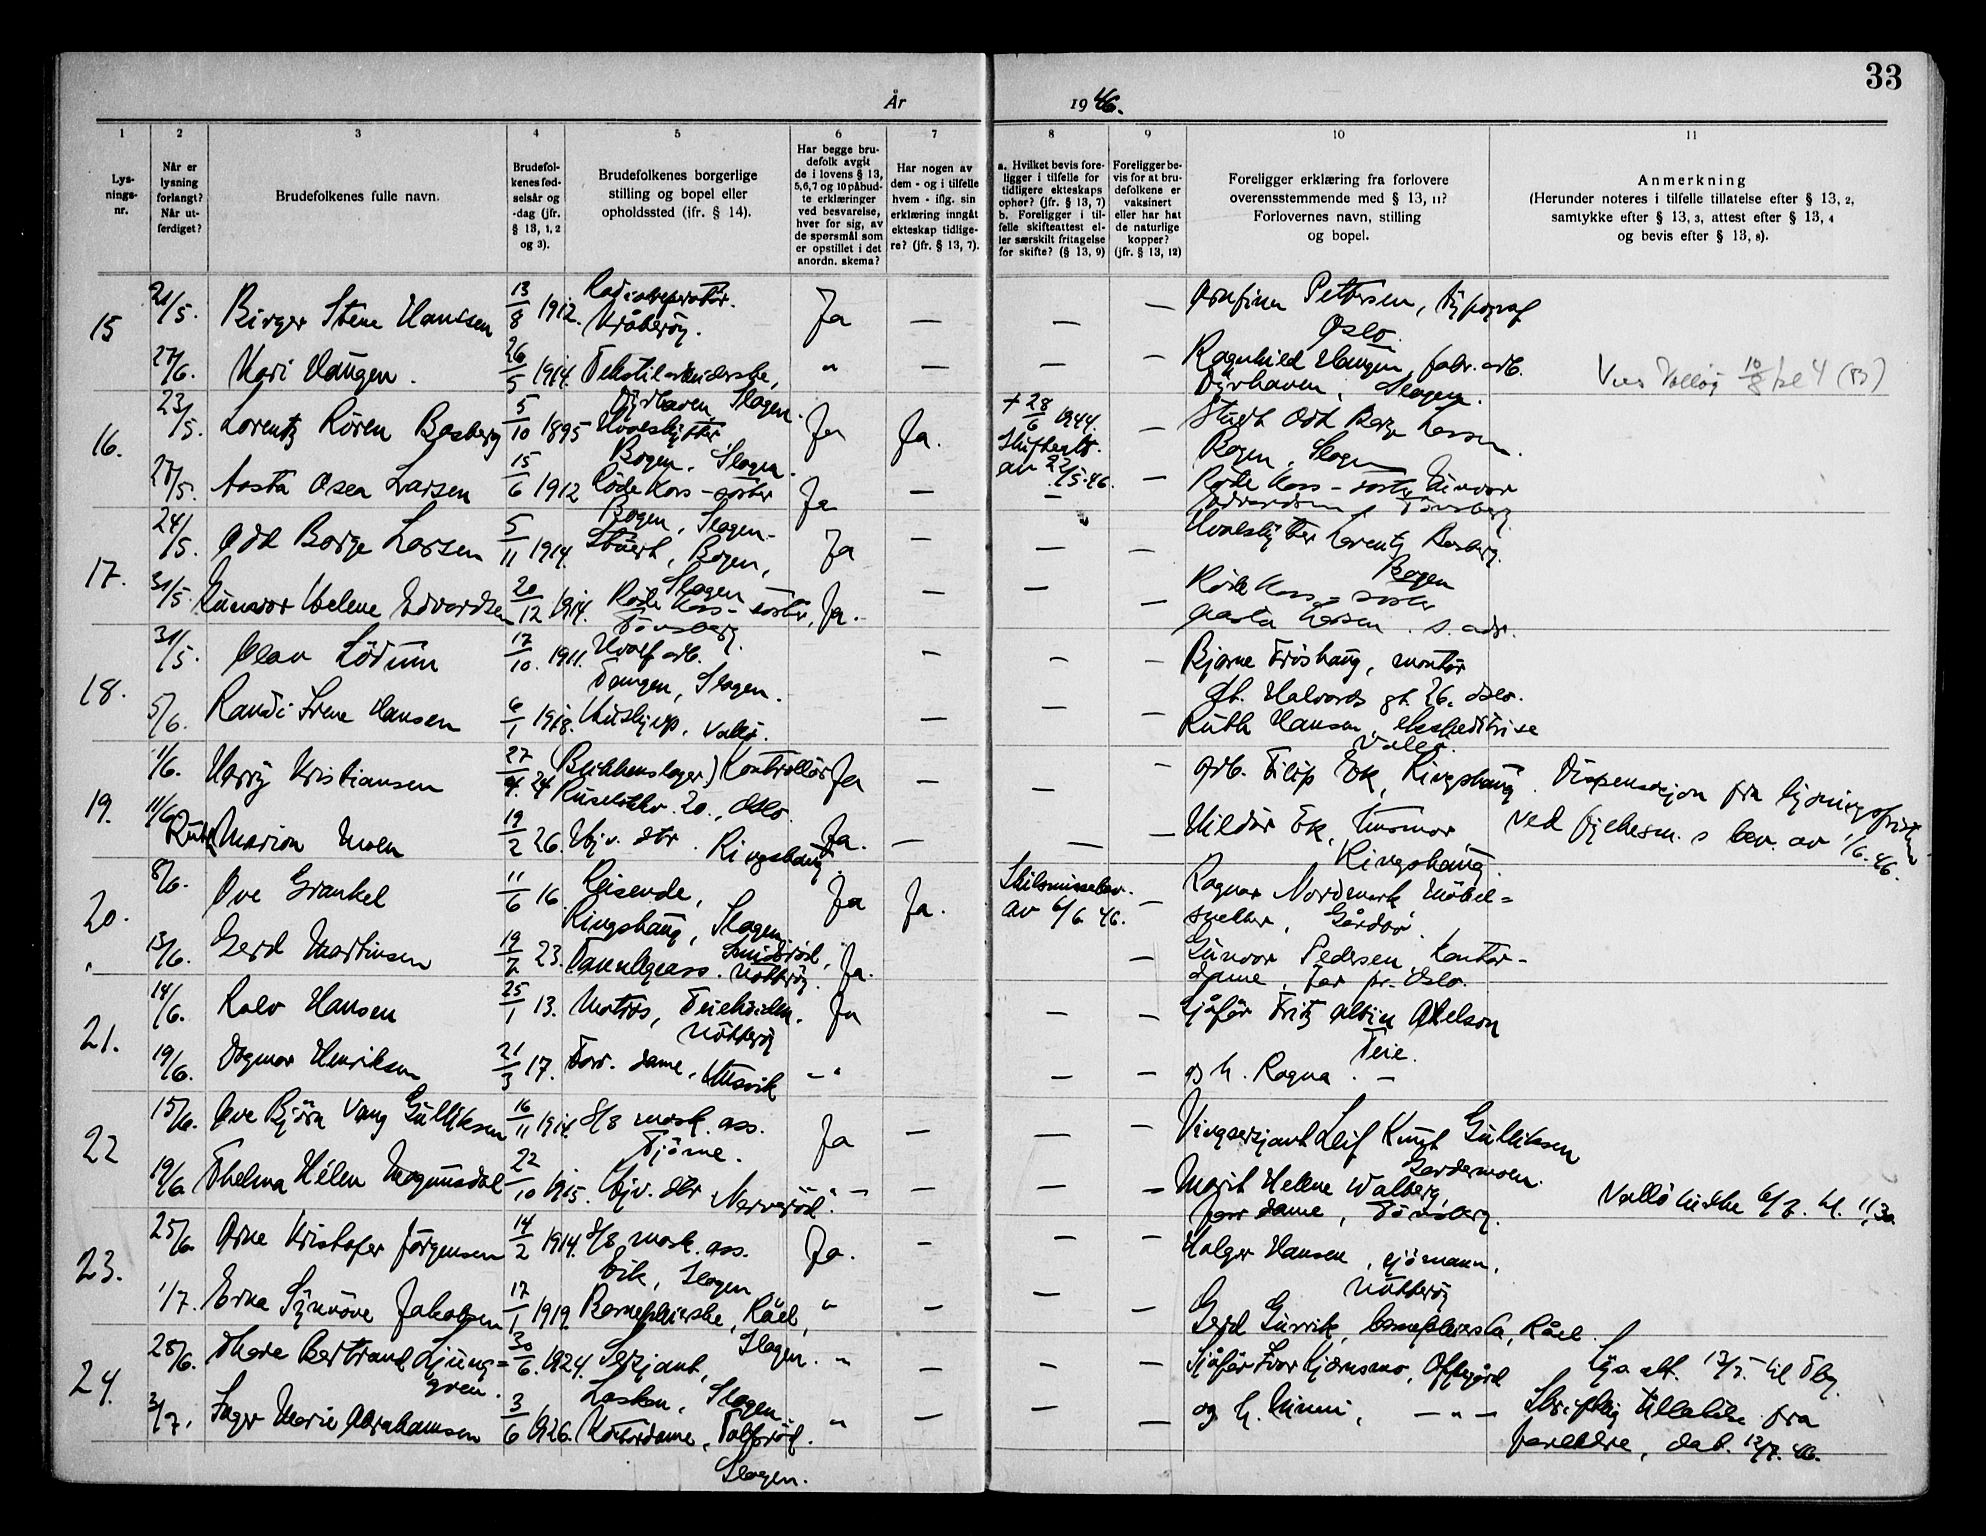 33
År 1946.
1 2 3 4 5 6 7 8 9 10 11
Lysningsnr.
Når er lysning forlangt? Når utferdiget?
Brudefolkenes fulle navn.
Brudefolkenes fødselsår og -dag (jfr. § 13, 1, 2 og 3).
Brudefolkenes borgerlige stilling og bopel eller opholdssted (ifr. § 14).
Har begge brudefolk avgit de i lovens § 13, 5,6,7 og 10 påbudte erklæringer ved besvarelse, hver for sig, av de spørsmål som er opstillet i det anordn. skema?
Har nogen av dem - og i tilfelle hvem - iflg. sin erklæring inngått ekteskap tidligere? (jfr. § 13, 7).
a. Hvilket bevis foreligger i tilfelle for tidligere ekteskaps ophør? (jfr. § 13, 7) b. Foreligger i tilfelle skifteattest eller særskilt fritagelse for skifte? (§ 13, 9)
Foreligger bevis for at brudefolkene er vaksinert eller har hat de naturlige kopper? (jfr. § 13, 12)
Foreligger erklæring fra forlovere overensstemmende med § 13, 11? Forlovernes navn, stilling og bopel.
Anmerkning (Herunder noteres i tilfelle tillatelse efter § 13, 2, samtykke efter § 13, 3, attest efter § 13, 4 og bevis efter § 13, 8).
15 21/5. Birger Stene Hanssen 13/8 1912. Radioreparatør. Kråkerøy. Ja — — — Arnfinn Pettersen, typograf Oslo.
27/6. Kari Haugen. 26/5 1914. Tekstilarbeiderske, Dyrhaven, Slagen. " — — — Ragnhild Haugen, fabr. arb. Dyrhaven, Slagen. Vies Valløy 10/8 kl 4 (B)
16. 23/5. Lorentz Søren Basberg 5/10 1895 Hvalskytter Bogen, Slagen. Ja Ja. + 28/6 1944. Skifteatt. av 22/5.46. — Stuert Odd Børge Larsen Bogen, Slagen
27/5. Aasta Osea Larsen 15/6 1912 Røde Kors-søster Bogen, Slagen. Ja — — — Røde Kors-søster Gunvor Edvardsen, Tønsberg
17. 24/5. Odd Børge Larsen 5/11 1914. Stuert, Bogen, Slagen Ja — — — Hvalskytter Lorentz Basberg. Bogen
31/5. Gunvor Helene Edvardsen 20/12 1914. Røde Kors-søster, Tønsberg. Ja. — — — Røde Kors-søster Aasta Larsen. s. adr.
18. 31/5. Olav Lödum 17/10. 1911. Hvalf arb. Tangen, Slagen. — — — Bjarne Fröshaug, montör St. Halvards gt. 26. Oslo.
5/6. Randi Irene Hansen 6/1 1918. Hushjelp, Vallø. — — — Ruth Hansen, ekspeditrise Vallø.
19. 1/6. Harry Kristiansen 27/4. 24 (Blikkenslager) Kontrollör Ruselökkv. 20., Oslo. Ja — — — Arb. Filip Ek, Ringshaug. Dispensasjon fra lysningsfristen
11/6 Ruth Marion Moen 19/2 26. Hjv. dtr. Ringshaug. Ja. — — — Hildur Ek, husmor Ringshaug. ved fylkesm. s bev. av 1/6.46.
20. 8/6. Ove Grankel 11/6 16. Reisende, Ringshaug, Slagen Ja Ja. Skilsmissebev. av 6/6 46. — Ragnar Nordmark Möbelsnekker, Gårdsö.
13/6. Gerd Martinsen 19/7 23. Tannlegeass. Smidsröd, Nötteröy. Ja. — Gunvor Pedersen, Kontordame, Jar pr. Oslo.
21. 14/6. Rolv Hansen 25/1 13. Matros, Teiehöiden. Nötteröy Ja — — Sjåför Fritz Albin Axelson Teie.
19/6. Dagmar Henriksen 21/3 17. Forr. dame, Husvik — " — — og h. Ragna. —
22 15/6. Ove Björn Vang Gulliksen 16/11 1914. S/8 mask. ass. Tjöme. Ja — — — Vingsersjant Leif Knut Gulliksen Gardermoen.
19/6. Thelma Hélen Magnusdal 22/10 1915. Hjv. dtr Narveröd. " — — — — Marit Helene Walberg, forr dame, Tönsberg. Vallö kirke 6/7. kl. 11,30
23. 25/6. Arne Kristofer Jørgensen 14/2 1914. S/8 mask. ass. Vik, Slagen Ja. — — — Holger Hansen, sjömann, Nötteröy
1/7. Erna Synnöve Jakobsen 17/1 1919. Barnepleierske, Råel, Slagen. " — — — Gerd Gurrik, barnepleierska, Råel.
24. 28/6. Thore Bertrand Ljunggren. 30/6. 1924. Sersjant, Lasken, Slagen. " — — — Sjåför Ivar Kjærnsmo, Oppegård Lys. att. 13/7. til Tbg.
3/7. Inger Marie Abrahamsen 3/6 1926. Kontordame, Tolfsröd. Slagen. " — — — og h. Mimmi, — " — Skriftlig tillatelse fra foreldre, dat. 12/7. 46.